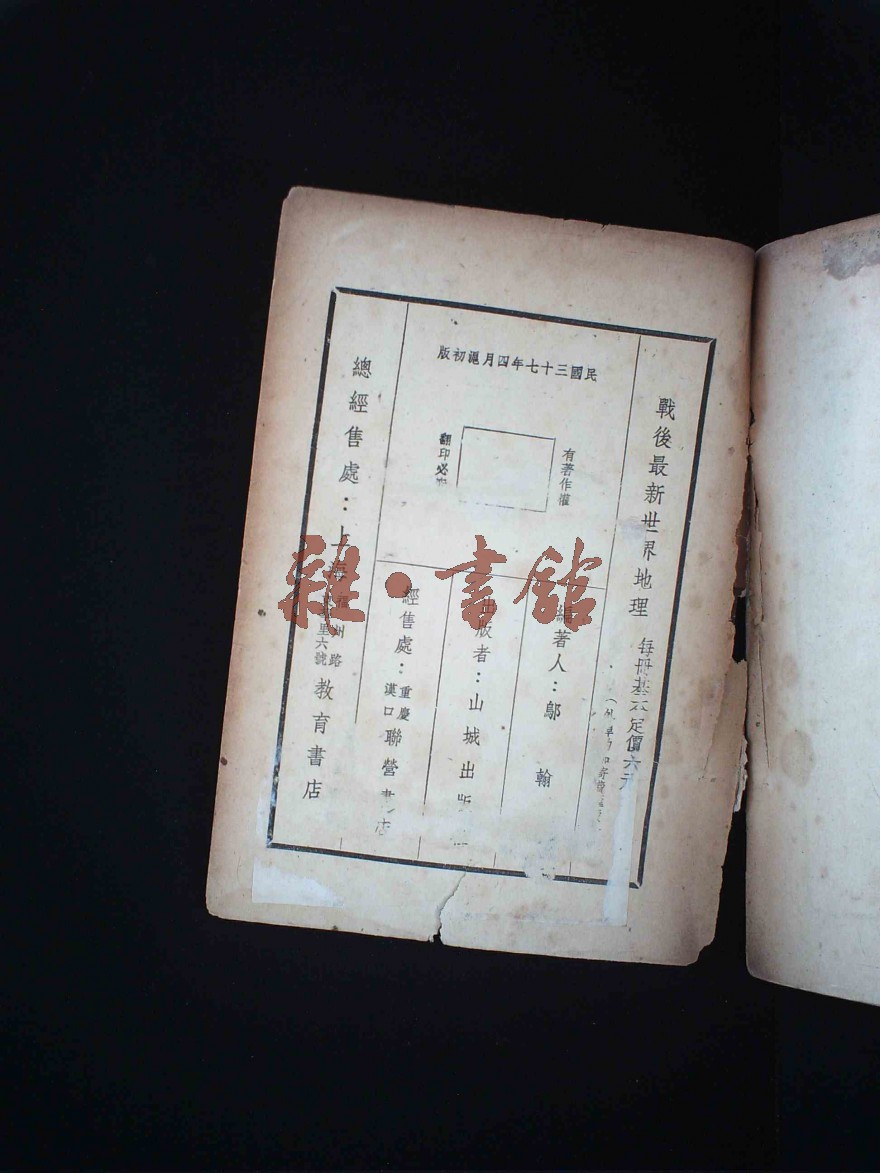 戰後最新世界地理 每冊基本定價六元
民國三十七年四月滬初版
有著作權
翻印必究
編著人：鄔 翰
出版者：山城出版
經售處：重慶 漢口 聯營書店
總經售處：上海 福州路 里六號 教育書店
雜·書館